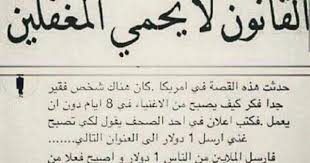 القانون لا يحمي المغفلين
حدثت هذه القصة في امريكا .كان هناك شخص فقير
جدا فكر كيف يصبح من الاغنياء، في 8 ايام دون ان
يعمل .فكتب اعلان في احد الصحف يقول لكي تصبح
غني ارسل 1 دولار الى العنوان التالي.......
فارسل الملايين من الناس 1 دولار و اصبح فعلا من